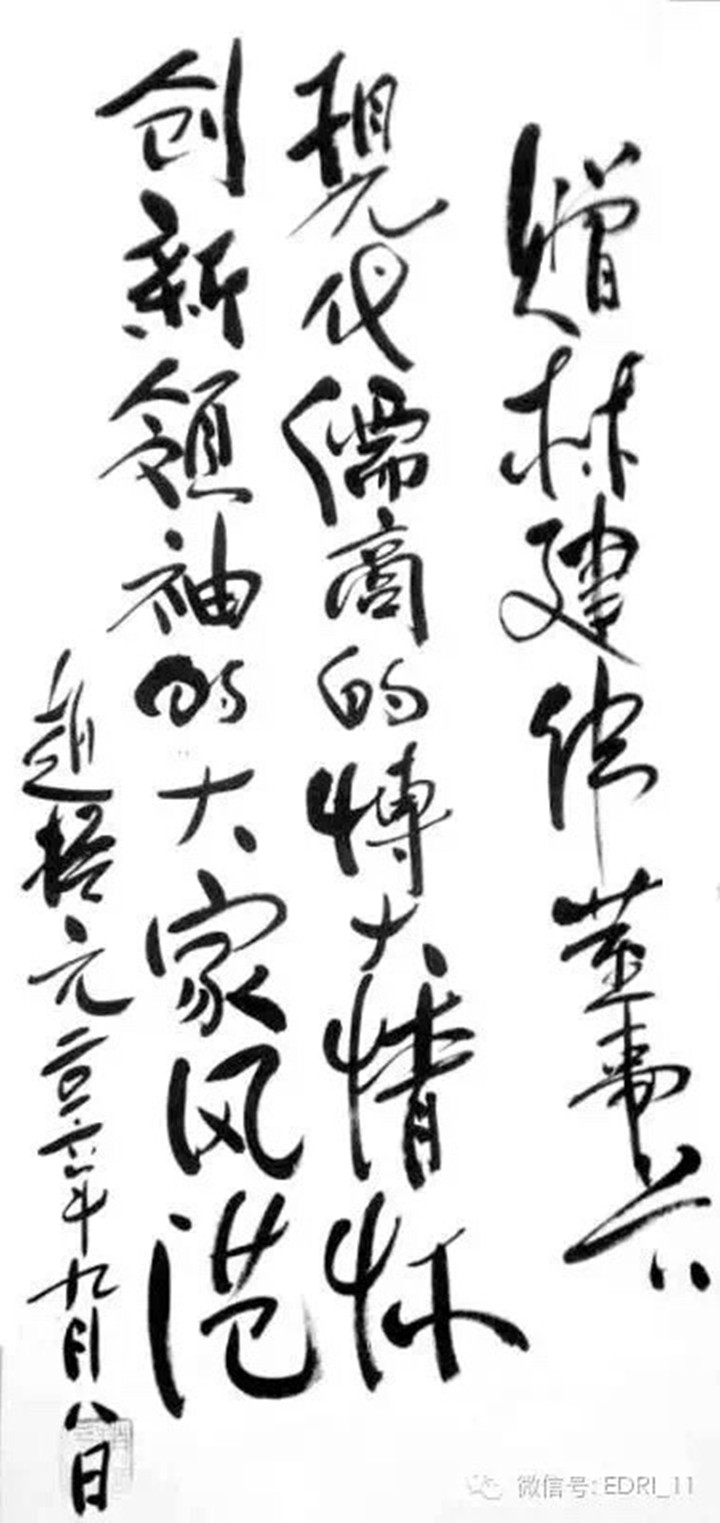 赠林建伟董事长
现代儒商的博大情怀
创新领袖的大家风范
赵 元二〇一六年九月八日
微信号: EDRI_11